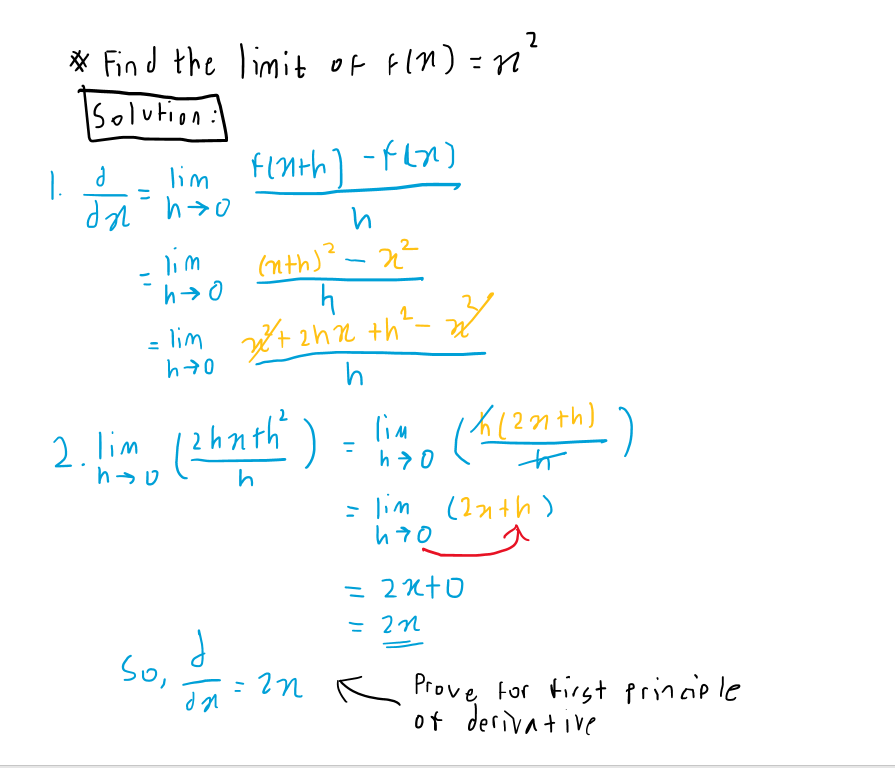 * Find the limit of f(x) = x²
Solution:
1. d/dx = lim h→0 (f(x+h) - f(x))/h
= lim h→0 ((x+h)² - x²)/h
= lim h→0 (x² + 2hx + h² - x²)/h
2. lim h→0 ((2hx+h²)/h) = lim h→0 (h(2x+h)/h)
= lim h→0 (2x+h)
= 2x+0
= 2x
So, d/dx = 2x
Prove for first principle
of derivative